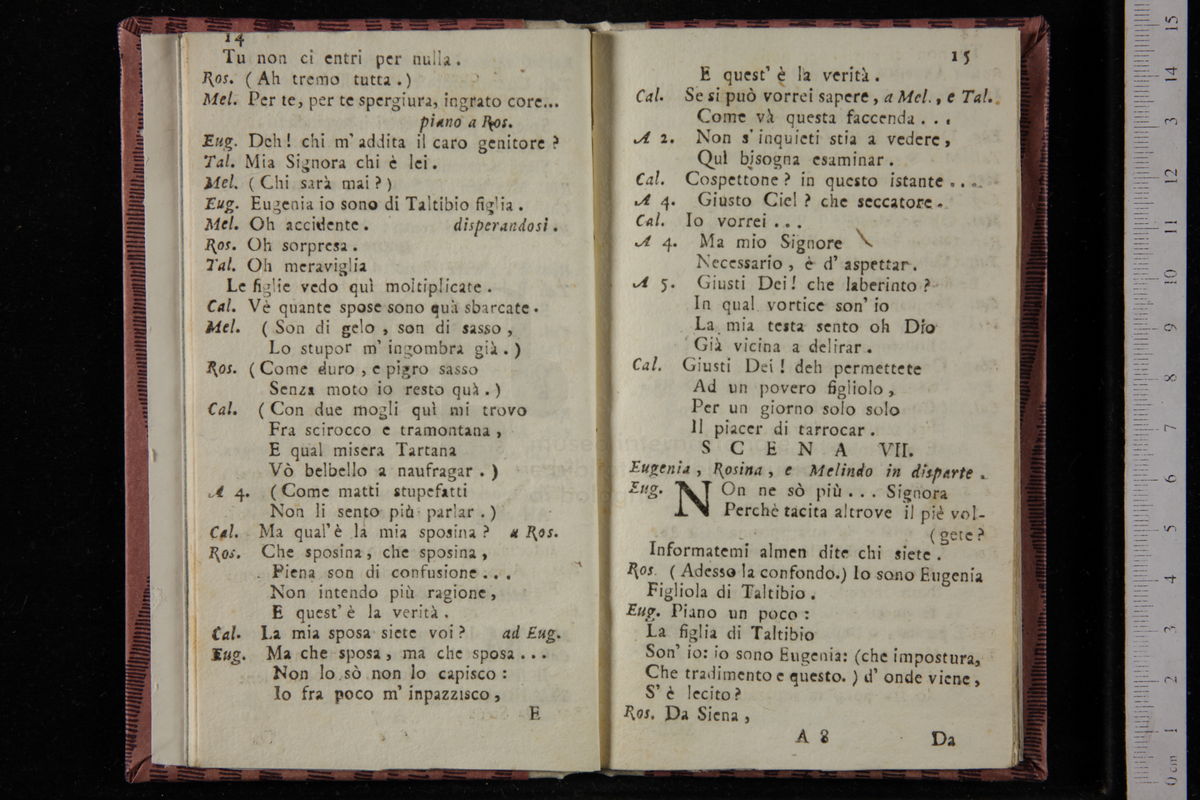 14
Tu non ci entri per nulla.
Ros. (Ah tremo tutta.)
Mel. Per te, per te spergiura, ingrato core...
piano a Ros.
Eug. Deh! chi m' addita il caro genitore?
Tal. Mia Signora chi è lei.
Mel. (Chi sarà mai?)
Eug. Eugenia io sono di Taltibio figlia.
Mel. Oh accidente. disperandosi.
Ros. Oh sorpresa.
Tal. Oh meraviglia
Le figlie vedo quì moltiplicate.
Cal. Vè quante spose sono quà sbarcate.
Mel. (Son di gelo, son di sasso,
Lo stupor m' ingombra già.)
Ros. (Come duro, e pigro sasso
Senza moto io resto quà.)
Cal. (Con due mogli quì mi trovo
Fra scirocco e tramontana,
E qual misera Tartana
Vò belbello a naufragar.)
A 4. (Come matti stupefatti
Non li sento più parlar.)
Cal. Ma qual' è la mia sposina? a Ros.
Ros. Che sposina, che sposina,
Piena son di confusione...
Non intendo più ragione,
E quest' è la verità.
Cal. La mia sposa siete voi? ad Eug.
Eug. Ma che sposa, ma che sposa...
Non lo sò non lo capisco:
Io fra poco m' inpazzisco,
E
15
E quest' è la verità.
Cal. Se si può vorrei sapere, a Mel., e Tal.
Come và questa faccenda...
A 2. Non s' inquieti stia a vedere,
Quì bisogna esaminar.
Cal. Cospettone? in questo istante...
A 4. Giusto Ciel? che seccatore.
Cal. Io vorrei...
A 4. Ma mio Signore
Necessario, è d' aspettar.
A 5. Giusti Dei! che laberinto?
In qual vortice son' io
La mia testa sento oh Dio
Già vicina a delirar.
Cal. Giusti Dei! deh permettete
Ad un povero figliolo,
Per un giorno solo solo
Il piacer di tarrocar.
SCENA VII.
Eugenia, Rosina, e Melindo in disparte.
Eug. NOn ne sò più... Signora
Perchè tacita altrove il piè vol-
(gete?
Informatemi almen dite chi siete.
Ros. (Adesso la confondo.) Io sono Eugenia
Figliola di Taltibio.
Eug. Piano un poco:
La figlia di Taltibio
Son' io: io sono Eugenia: (che impostura,
Che tradimento e questo.) d' onde viene,
S' è lecito?
Ros. Da Siena,
A 8 Da